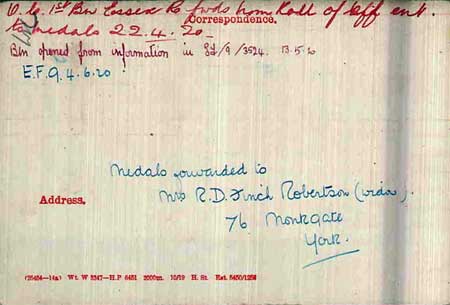 O.C. 1st Bn Essex R fwds Nom Roll of Off ent.
to medals 22.4.20
Correspondence.
Bn opened from information in /9/3524. 13.5.20
E.F.9. 4.6.20
Medals forwarded to
Mrs R.D. Finch Robertson (widow).
Address.
76 Monkgate
York.
(26454—14a) Wt. W 5347—H.P 6451 2000m. 10/19 H. St. Est. 5450/1256